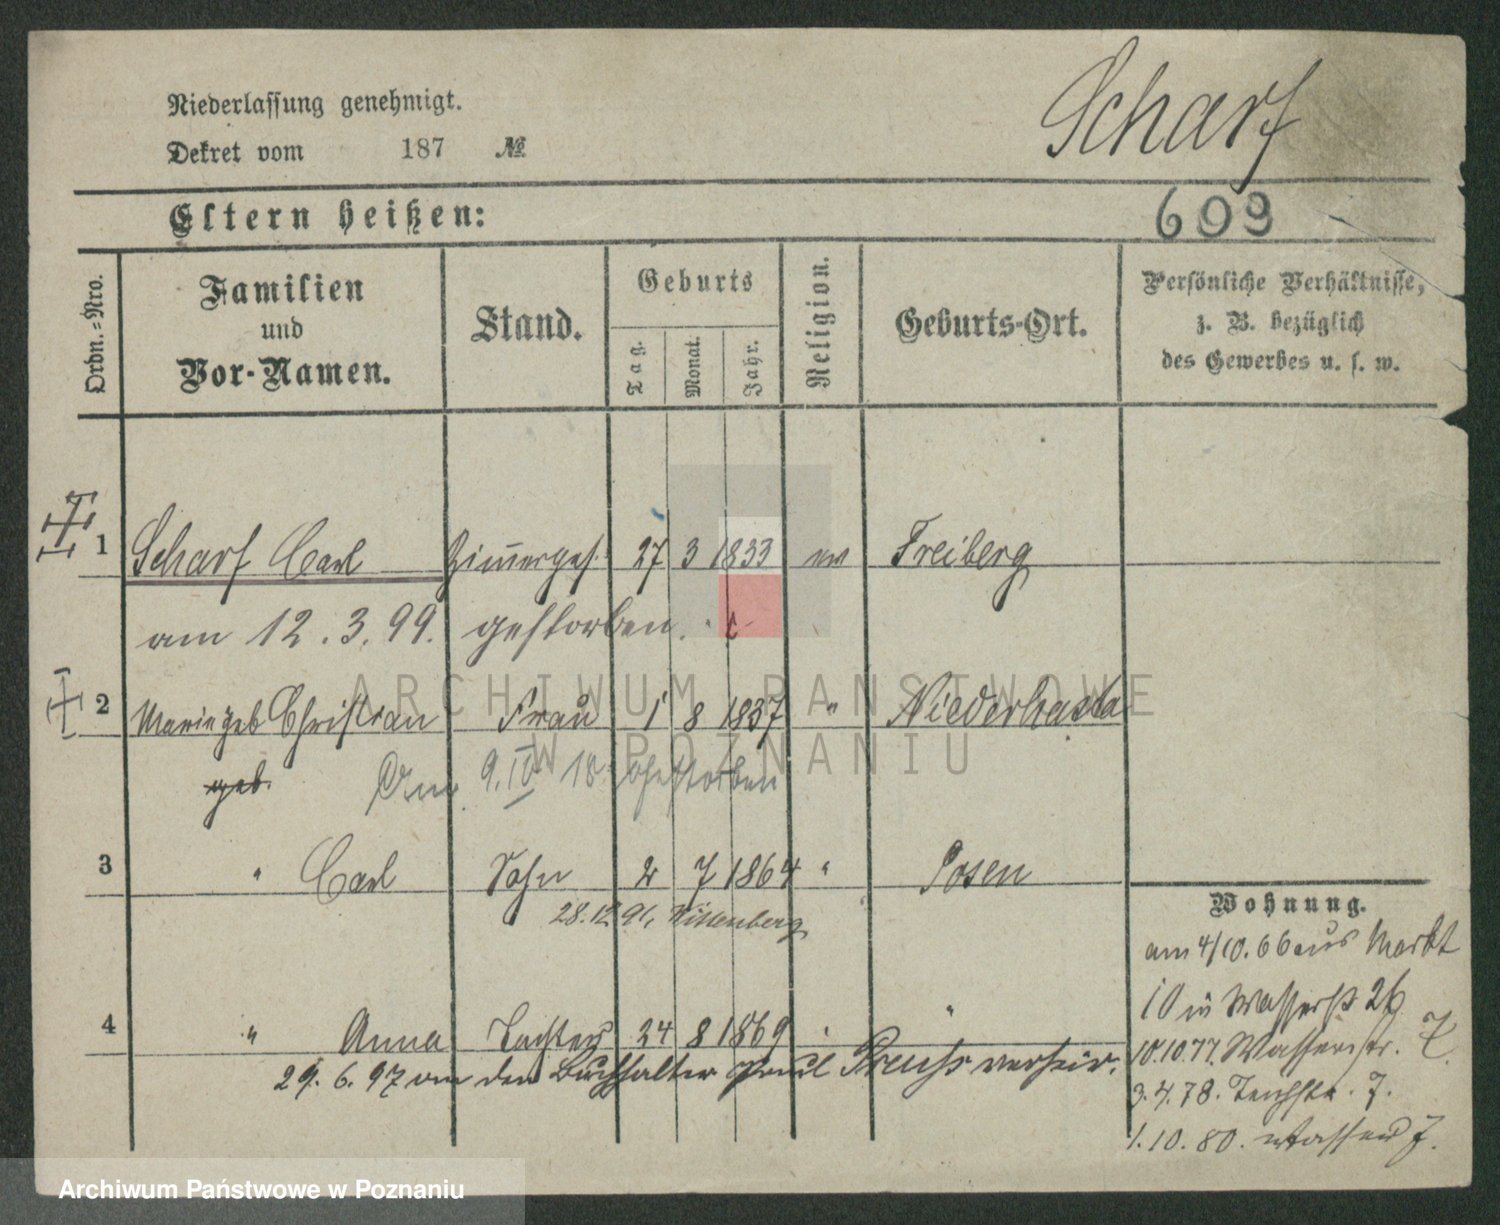 Niederlassung genehmigt.
Scharf
Dekret vom 187 №
Eltern heißen:
609
Ordn.=Nro.
Familien und Vor-Namen.
Stand.
Geburts
Tag.
Monat.
Jahr.
Religion.
Geburts-Ort.
Persönliche Verhältnisse,
z. B. bezüglich
des Gewerbes u. s. w.
1 Scharf Carl Zimmerges. 27 3 1833 ev Freiberg
am 12.3.99. gestorben.
2 Marie geb Christian Frau 1 8 1837 "
geb. Am 9.IV 18 gestorben
3 " Carl Sohn 2 7 1864 " Posen
28.12.91, Wittenberg
4 " Anna Tochter 24 8 1869 " "
29.6.97 an den Buchhalter Paul Preuss verheir.
Wohnung.
am 4/10.66 aus Markt
10 in Wasserstr 26
10.10.77. Wasserstr. 7.
3.4.78. Teichstr. 7.
1.10.80. Wasser 7.
ARCHIWUM PAŃSTWOWE
W POZNANIU
Archiwum Państwowe w Poznaniu